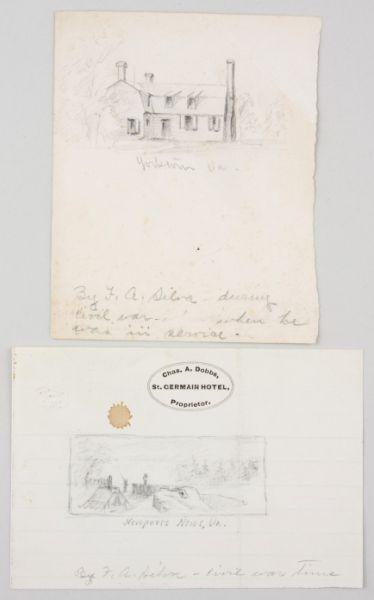 Yorktown Va.
By F. A. Silva - during
Civil war - when he
was in service.
Chas. A. Dobbs,
ST. GERMAIN HOTEL,
Proprietor.
Newports News, Va.
By F. A. Silva - Civil war time